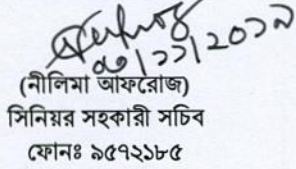 (নীলিমা আফরোজ)
সিনিয়র সহকারী সচিব
ফোনঃ ৯৫৭২১৮৫